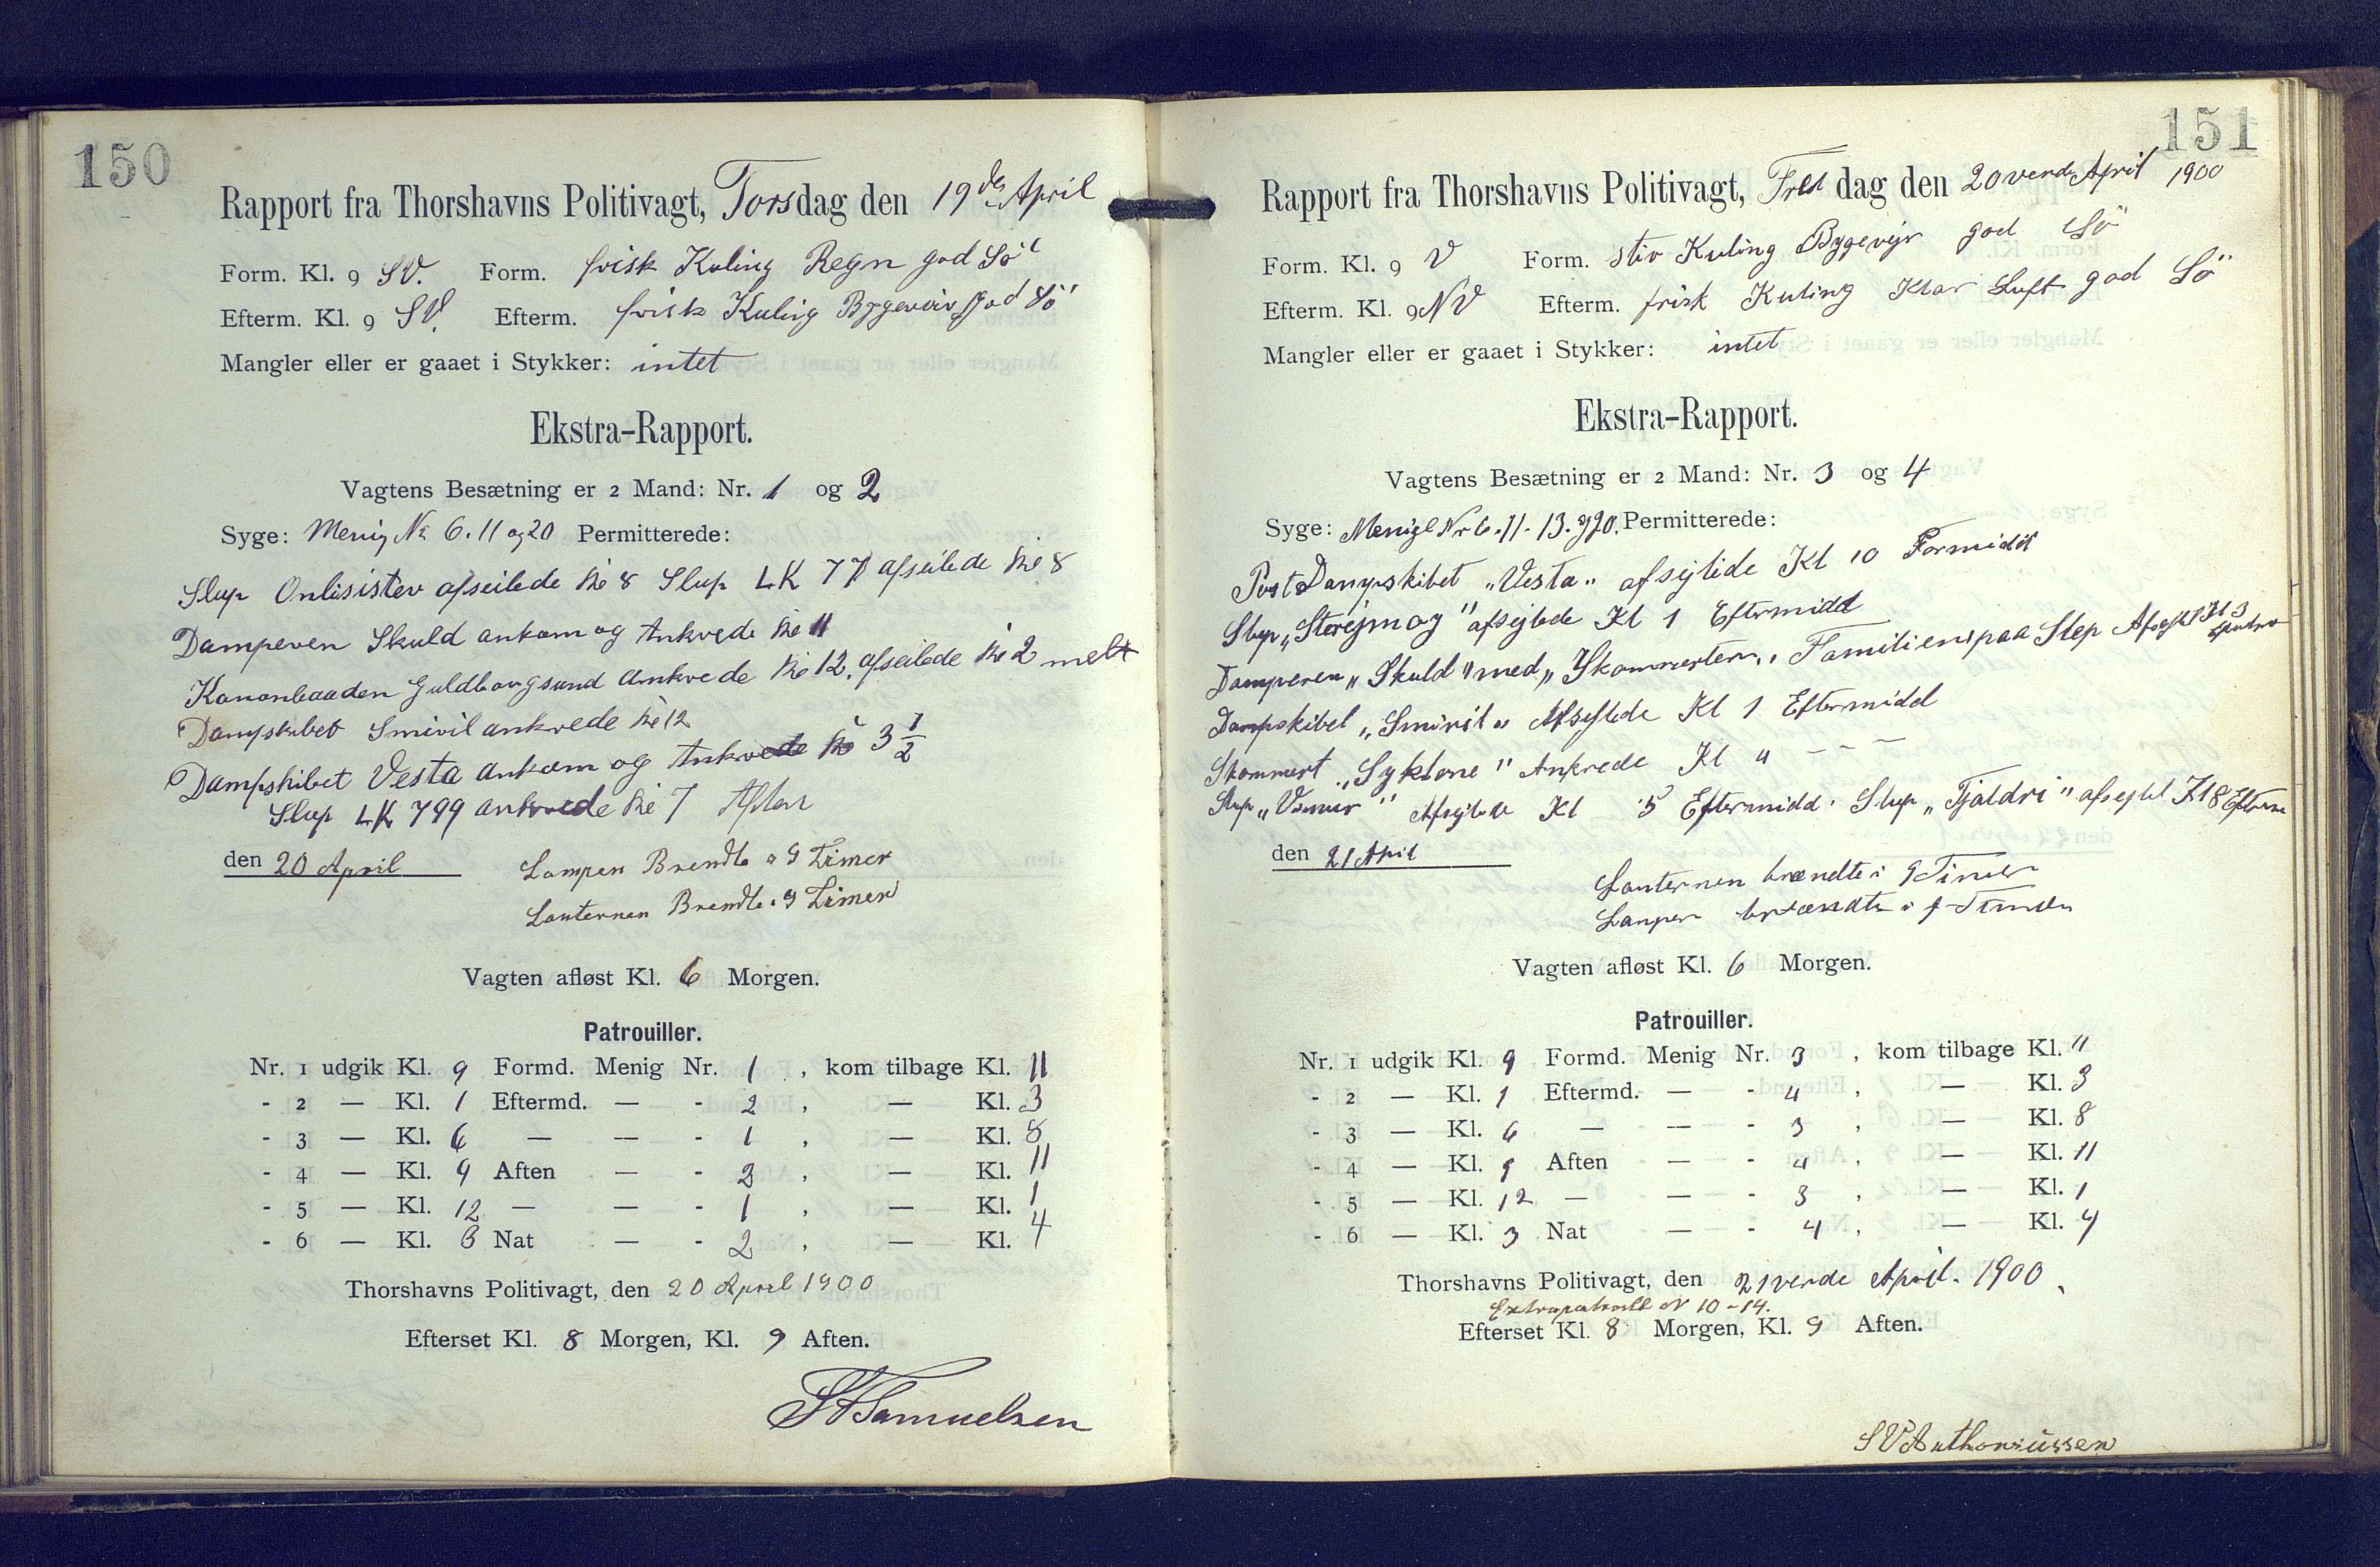 150
Rapport fra Thorshavns Politivagt, Torsdag den 19de April
Form. Kl. 9 SV. Form. frisk Kuling Regn god Sö
Efterm. Kl. 9 SV. Efterm. frisk Kuling Bygeveir god Sö
Mangler eller er gaaet i Stykker: intet
Ekstra-Rapport.
Vagtens Besætning er 2 Mand: Nr. 1 og 2
Syge: Menig Nr 6. 11 og 20 Permitterede:
Slup afseilede Kl 8 Slup LK 77 afseilede Kl 8
Damperen Skuld ankom og Ankrede Kl 11
Kanonbaaden Guldborgsund Ankrede Kl 12. afseilede Kl 2
Dampskibet Smiril ankrede Kl 12
Dampskibet Vesta Ankom og Ankrede Kl 3 1/2
Slup LK 799 ankrede Kl 7 Aften
den 20 April
Lampen Brendte i 9 Timer
Lanternen Brendte i 9 Timer
Vagten afløst Kl. 6 Morgen.
Patrouiller.
Nr. 1 udgik Kl. 9 Formd. Menig Nr. 1, kom tilbage Kl. 11
- 2 — Kl. 1 Eftermd. — - 2, — Kl. 3
- 3 — Kl. 6 — — - 1, — Kl. 8
- 4 — Kl. 9 Aften — - 2, — Kl. 11
- 5 — Kl. 12 — — - 1, — Kl. 1
- 6 — Kl. 3 Nat — - 2, — Kl. 4
Thorshavns Politivagt, den 20 April 1900
Efterset Kl. 8 Morgen, Kl. 9 Aften.
Samuelsen
151
Rapport fra Thorshavns Politivagt, Fredag den 20vende April 1900
Form. Kl. 9 V Form. Stiv Kuling Bygevejr god Sö
Efterm. Kl. 9 NV Efterm. frisk Kuling Klar Luft god Sö
Mangler eller er gaaet i Stykker: intet
Ekstra-Rapport.
Vagtens Besætning er 2 Mand: Nr. 3 og 4
Syge: Menige Nr 6. 11. 13. og 20. Permitterede:
Post Dampskibet „Vesta" afsejlede Kl 10 Formidd
Slup afsejlede Kl 1 Eftermidd
Damperen „Skuld" med „ Familien" paa Slep Afsejl Kl 3
Dampskibet „Smiril" Afsejlede Kl 1 Eftermidd
Skonnert Ankrede Kl " - - -
Slup Afsejlede Kl 5 Eftermidd. Slup „Tjaldri" afsejled Kl 8 Efterm
den 21 April
Lanternen brændte i 9 Timer
Lampen brændte i 9 Timer
Vagten afløst Kl. 6 Morgen.
Patrouiller.
Nr. 1 udgik Kl. 9 Formd. Menig Nr. 3, kom tilbage Kl. 11
- 2 — Kl. 1 Eftermd. — - 4, — Kl. 3
- 3 — Kl. 6 — — - 3, — Kl. 8
- 4 — Kl. 9 Aften — - 4, — Kl. 11
- 5 — Kl. 12 — — - 3, — Kl. 1
- 6 — Kl. 3 Nat — - 4, — Kl. 4
Thorshavns Politivagt, den 21vende April. 1900.
Extrapatroille N 10-14.
Efterset Kl. 8 Morgen, Kl. 9 Aften.
SV Anthoniussen